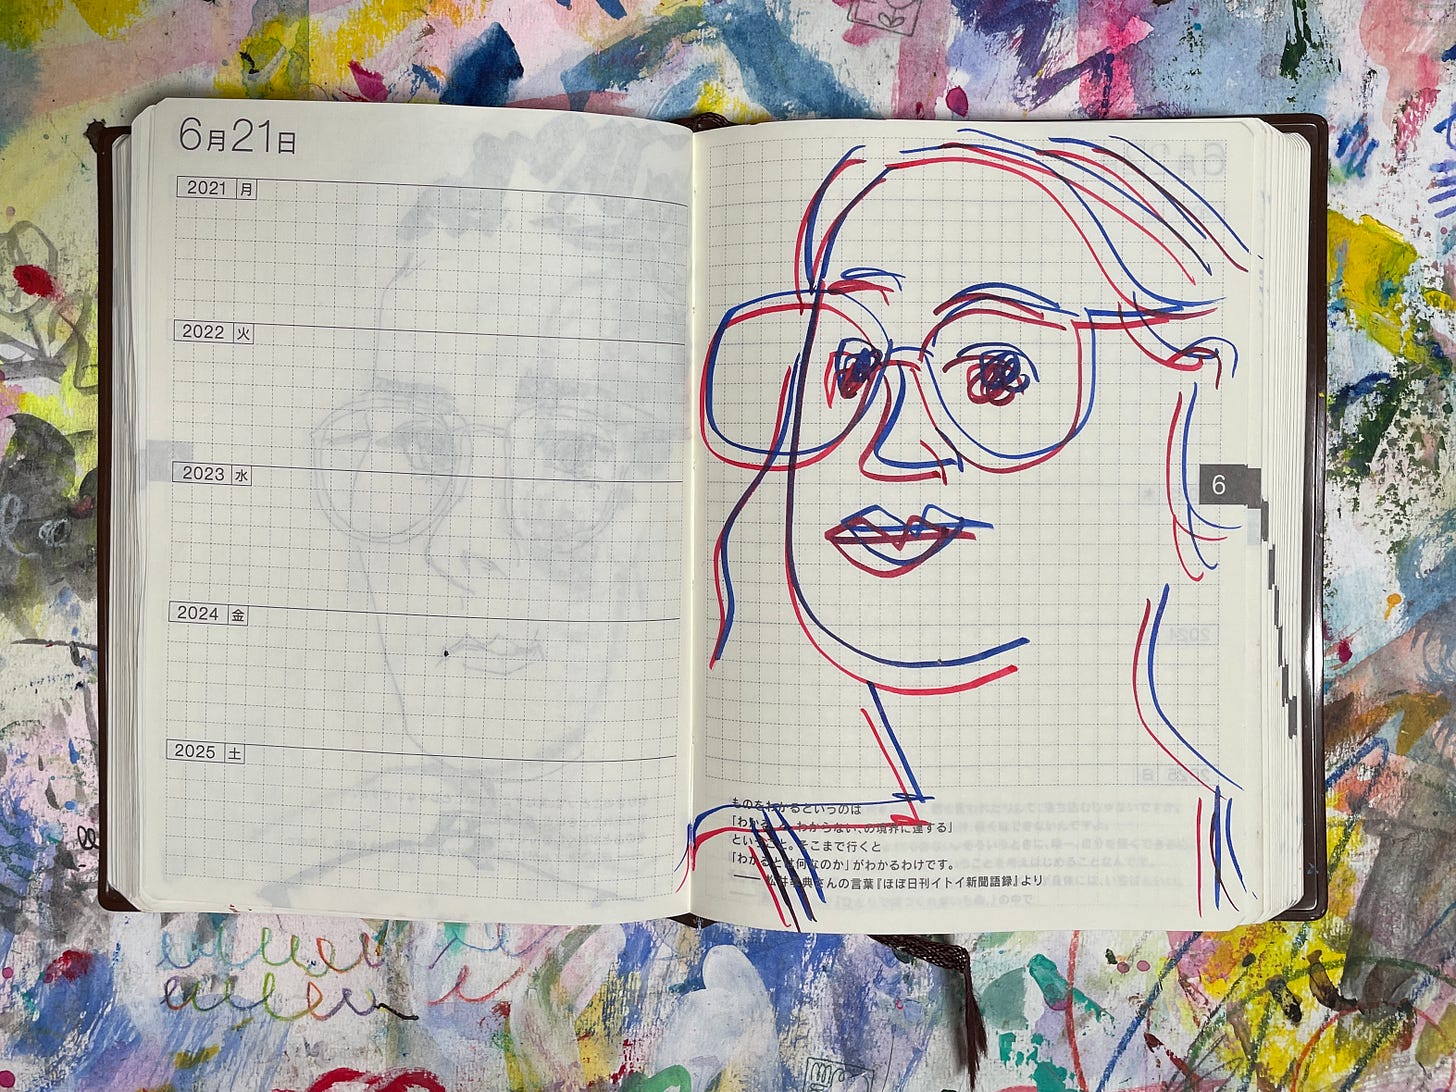 6月21日
2021 月
2022 火
2023 水
2024 金
2025 土
6
ものをわかるというのは
「わかる、と、わからない、の境界に達する」
ということ。そこまで行くと
「わかるとは何なのか」がわかるわけです。
さんの言葉『ほぼ日刊イトイ新聞語録』より